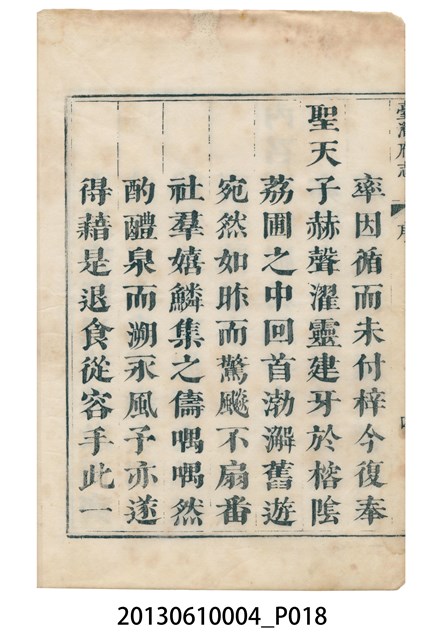 臺灣府志
序
率因循而未付梓今復奉
聖天子赫聲濯靈建牙於榕陰
荔圃之中回首渤澥舊遊
宛然如昨而驚颷不扇番
社羣嬉鱗集之儔喁喁然
酌醴泉而溯永風予亦遂
得藉是退食從容手此一
20130610004_P018